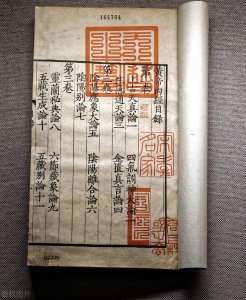 164764
黃帝內經目錄
第一卷
上古天真論一 四氣調神大論二
生氣通天論三 金匱真言論四
第二卷
陰陽應象大論五 陰陽離合論六
陰陽別論七
第三卷
靈蘭秘典論八 六節藏象論九
五藏生成論十 五藏別論十一